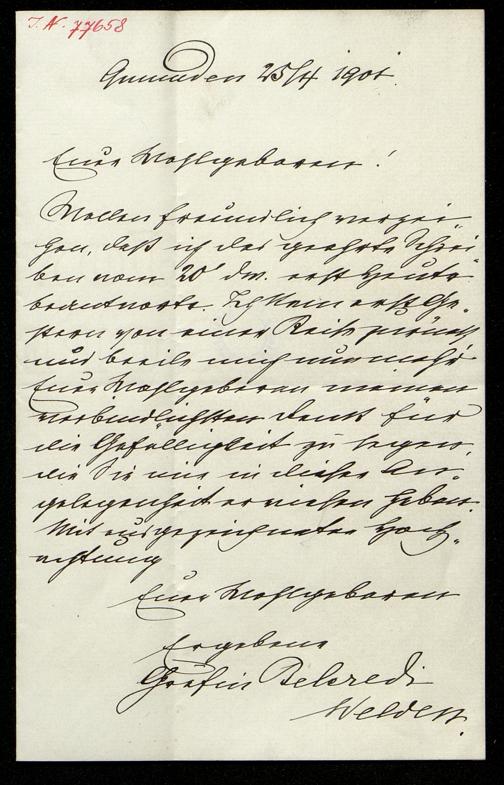 I. N. 77658
Gmunden 25/4 1901.
Euer Wohlgeboren!
Wollen freundlich verzei-
hen, daß ich das geehrte Schrei-
ben vom 20' dM. erst heute
beantworte. Ich kam erst Ge-
stern von einer Reise zurück
und beeile mich nunmehr
Euer Wohlgeboren meinen
verbindlichsten Dank für
die Gefälligkeit zu sagen,
die Sie mir in dieser An-
gelegenheit erwiesen haben.
Mit ausgezeichneter Hoch-
achtung
Euer Wohlgeboren
Ergebene
Gräfin Belcredi
Welden.